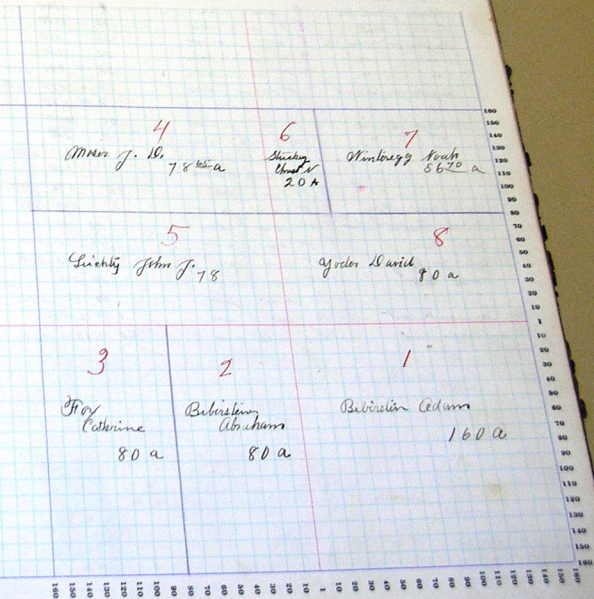 4
Moser J. D.
78 65 a
6
Stuckey
Christ N
20 A
7
Winteregg Noah
56 70 a
5
Liechty John J. 78
8
Yoder David
80 a
3
Fox
Catherine
80 a
2
Biberstein
Abraham
80 a
1
Biberstin Adam
160 a
160
150
140
130
120
110
100
90
80
70
60
50
40
30
20
10
1
10
20
30
40
50
60
70
80
90
100
110
120
130
140
150
160
160 150 140 130 120 110 100 90 80 70 60 50 40 30 20 10 1 10 20 30 40 50 60 70 80 90 100 110 120 130 140 150 160